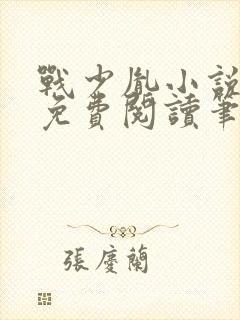 戰少胤小說
免費閱讀筆
張慶蘭